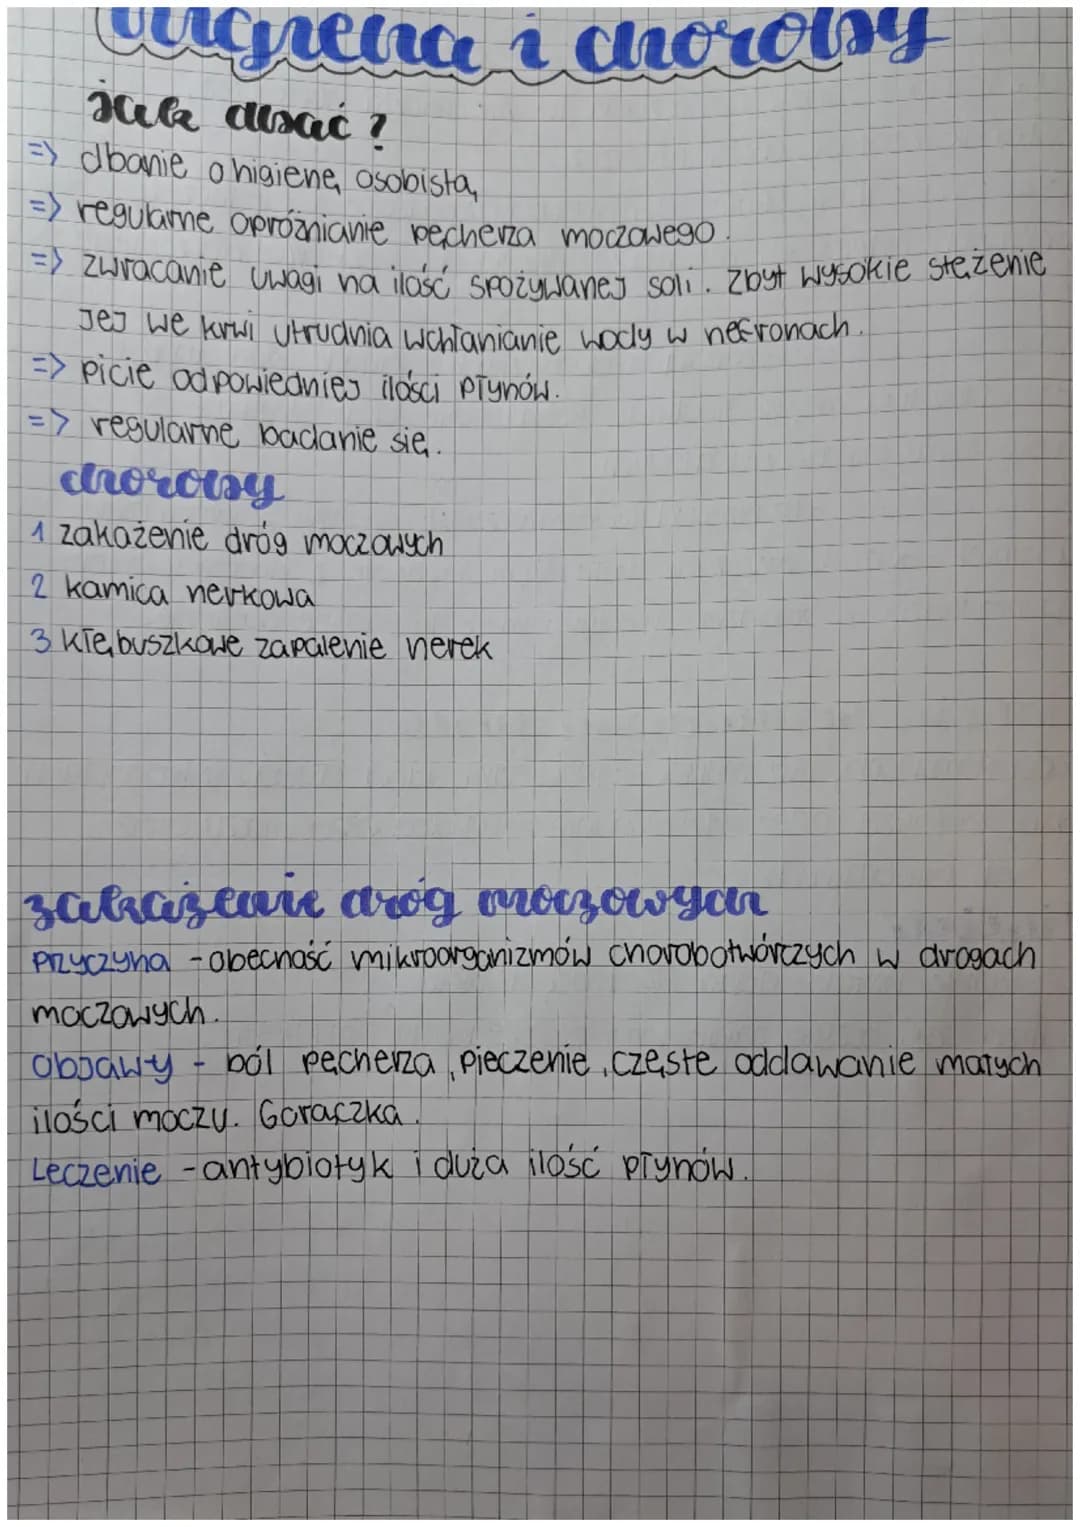 Higiena i choroby
jak dbać?
=> dbanie o higienę osobistą
=> regularne opróżnianie pęcherza moczowego.
=> zwracanie uwagi na ilość spożywanej soli. Zbyt wysokie stężenie
jej we krwi utrudnia wchłanianie wody w nefronach.
=> picie odpowiedniej ilości płynów.
=> regularne badanie się.
choroby
1 zakażenie dróg moczowych
2 kamica nerkowa
3 kłębuszkowe zapalenie nerek
zakażenie dróg moczowych
przyczyna - obecność mikroorganizmów chorobotwórczych w drogach
moczowych.
Objawy - ból pęcherza, pieczenie, częste oddawanie małych
ilości moczu. Gorączka.
Leczenie - antybiotyk i duża ilość płynów.